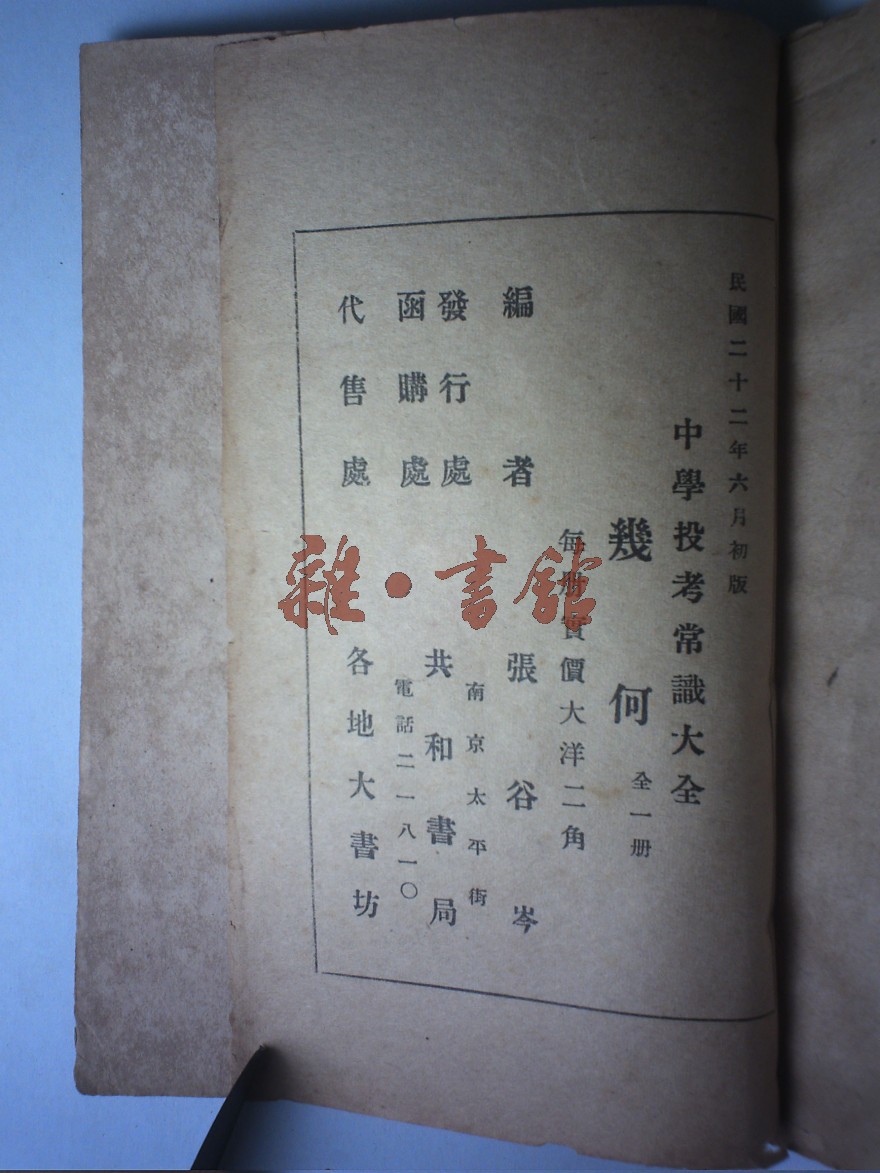 民國二十二年六月初版
中學投考常識大全
幾何 全一册
每册實價大洋二角
編者 張谷岑
發行處
函購處
共和書局
南京太平街
電話二一八一〇
代售處 各地大書坊
雜·書館